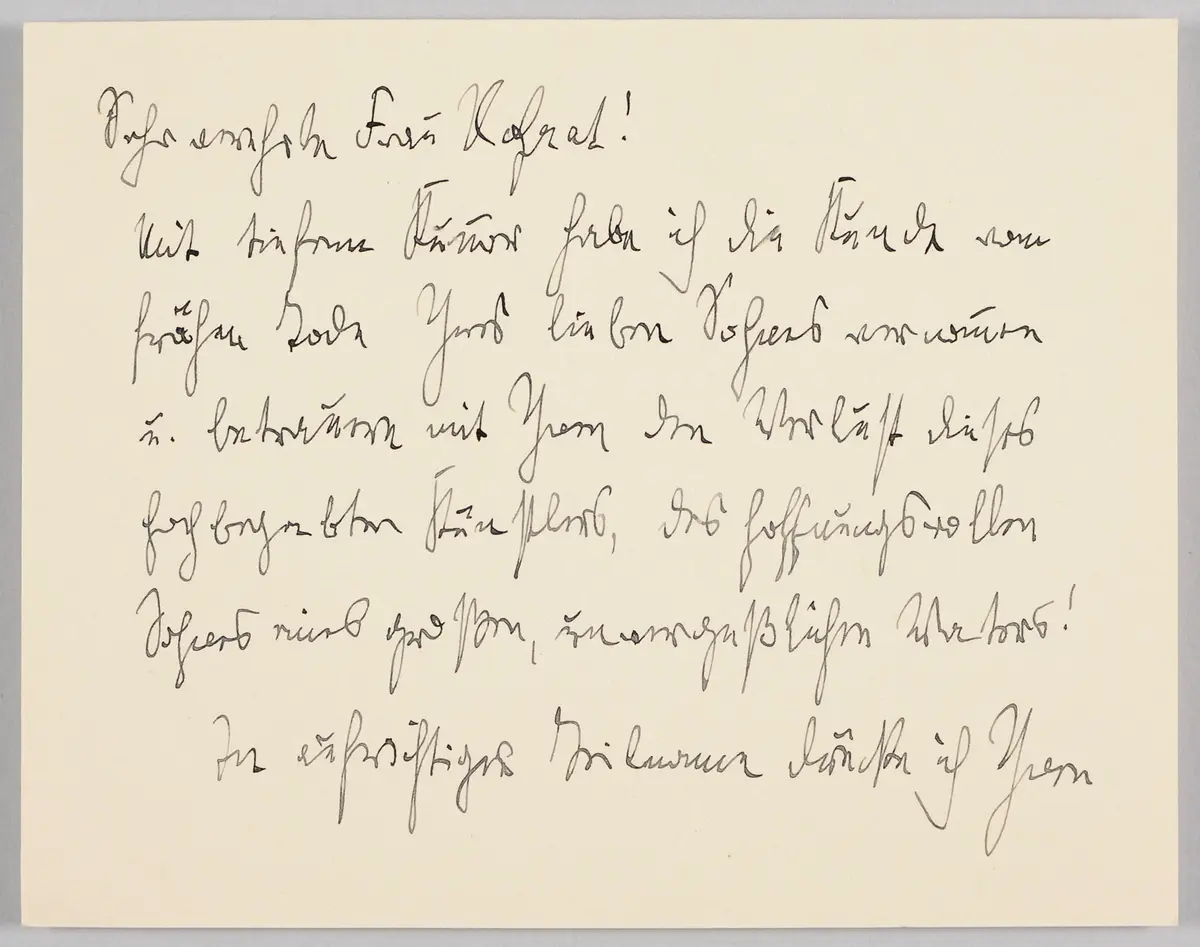 Sehr verehrte Frau Hofrat!
Mit tiefem Kum̄er habe ich die Kunde vom
frühen Tode Ihres lieben Sohnes vernom̄en
u. betrauere mit Ihnen den Verlust dieses
hochbegabten Künstlers, des hoffnungsvollen
Sohnes eines großen, unvergeßlichen Vaters!
In aufrichtiger Teilname drücke ich Ihnen